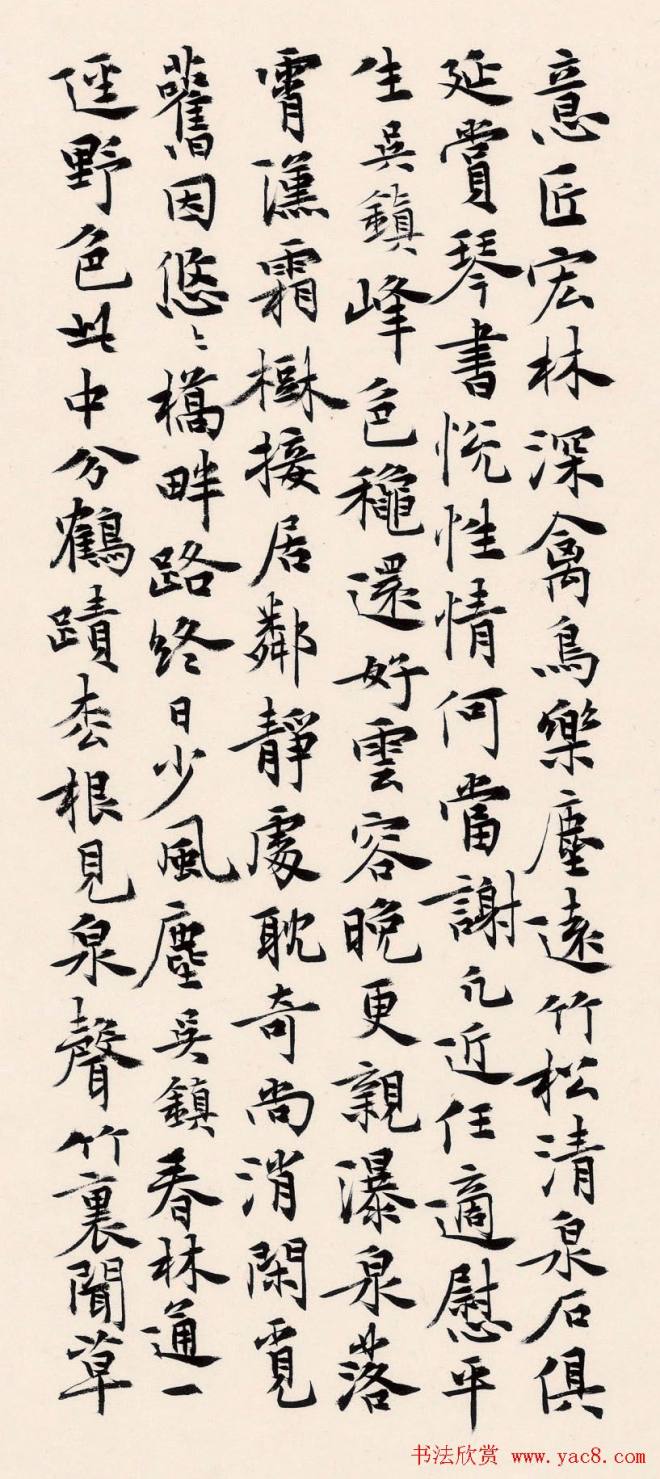 意匠宏林深禽鳥樂塵遠竹松清泉石俱
延賞琴書悅性情何當謝凡近任適慰平
生吳鎮峰色穐還好雲容晚更親瀑泉落
霄漢霜樹接居鄰靜處耽奇尚消閑覓
舊因悠〻橋畔路終日少風塵吳鎮春林通一
逕野色此中分鶴蹟枩根見泉聲竹裏聞草
书法欣赏 www.yac8.com